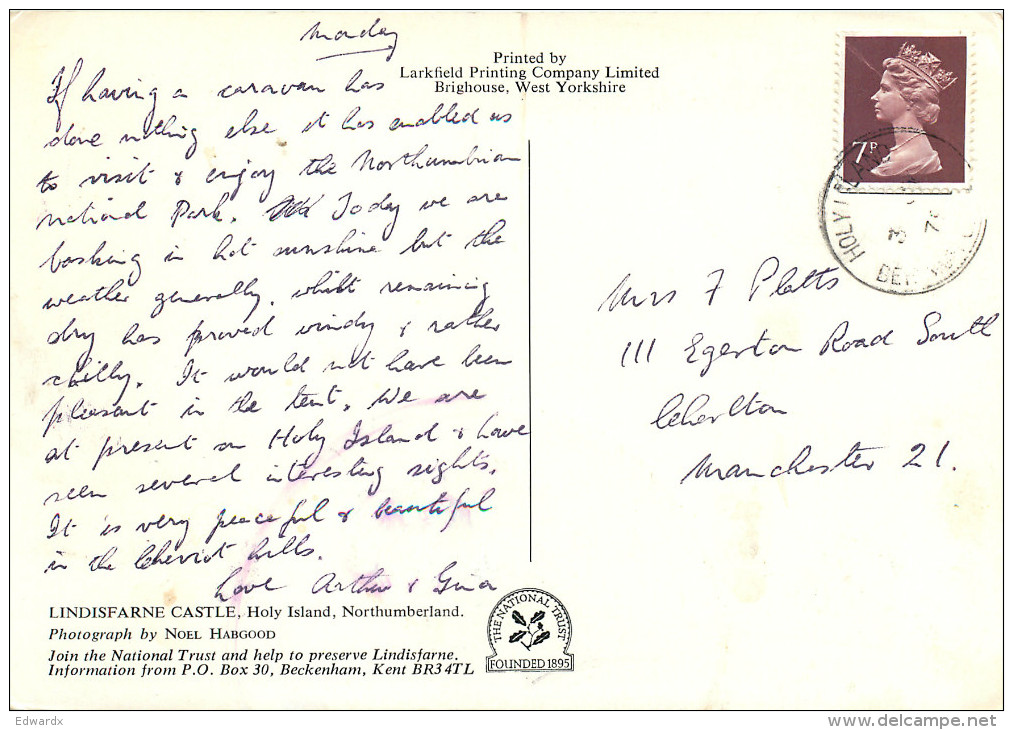 Monday
If having a caravan has
done nothing else it has enabled us
to visit & enjoy the Northumbrian
National Park. Today we are
basking in hot sunshine but the
weather generally, whilst remaining
dry has proved windy & rather
chilly. It would not have been
pleasant in the tent. We are
at present on Holy Island & have
seen several interesting sights.
It is very peaceful & beautiful
in the Cheviot hills.
Love Arthur & Gina
LINDISFARNE CASTLE, Holy Island, Northumberland.
Photograph by NOEL HABGOOD
Join the National Trust and help to preserve Lindisfarne.
Information from P.O. Box 30, Beckenham, Kent BR3 4TL
THE NATIONAL TRUST
FOUNDED 1895
Printed by
Larkfield Printing Company Limited
Brighouse, West Yorkshire
7P
HOLY ISLAND
Mrs F Platts
111 Egerton Road South
Chorlton
Manchester 21.
Edwardx
delcampe.net